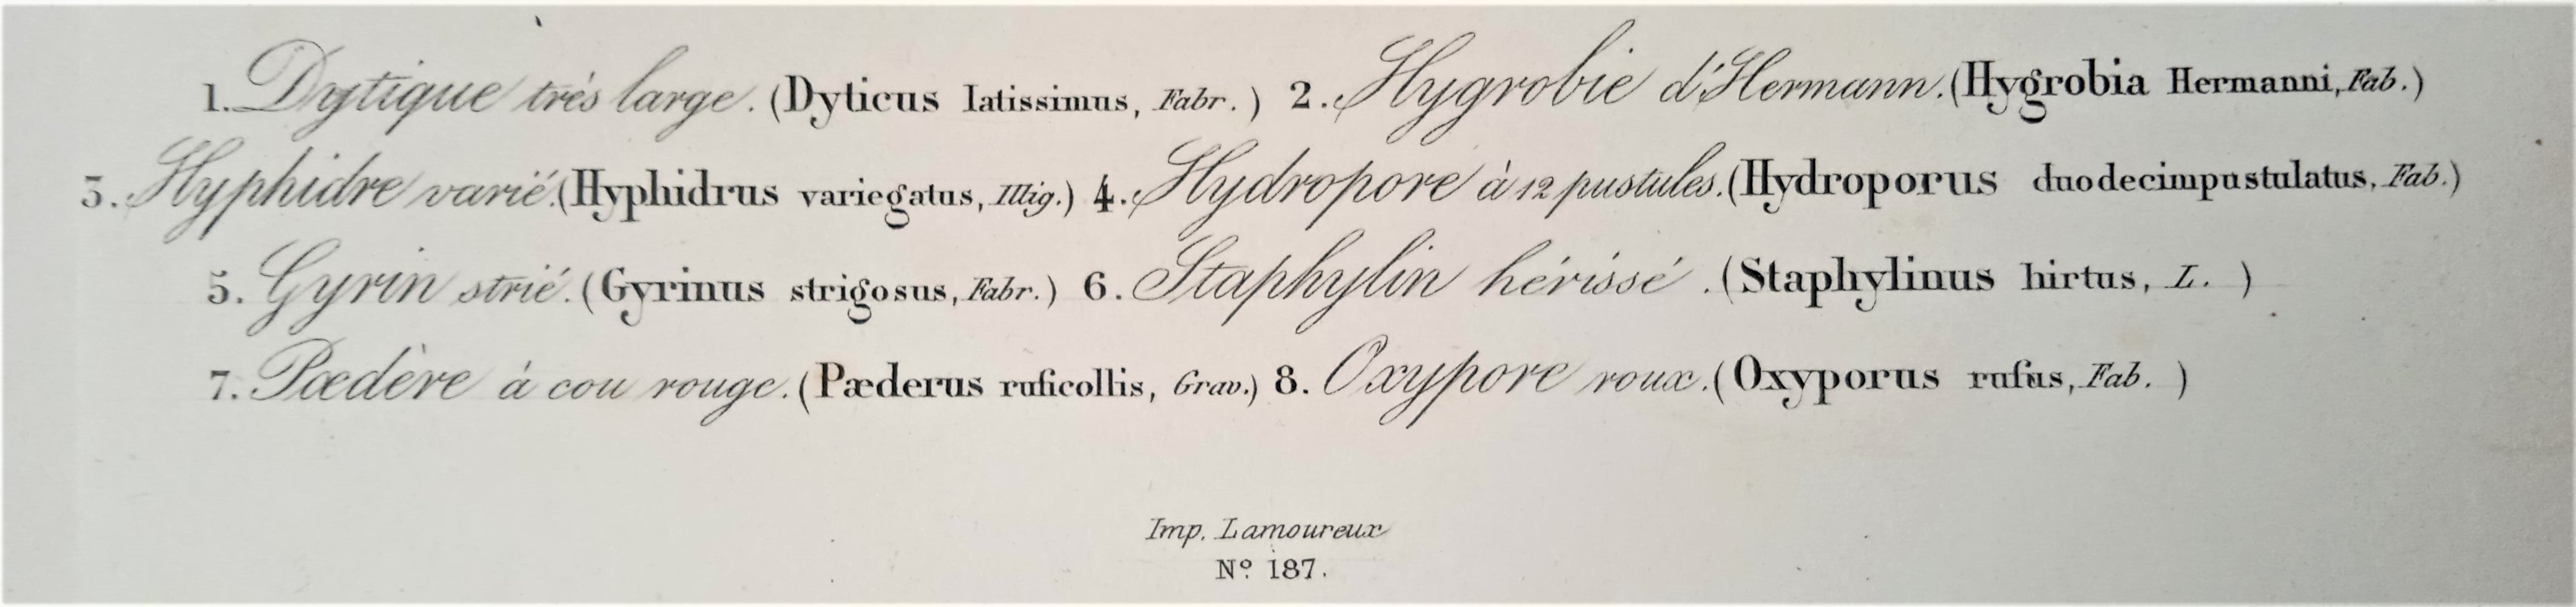 1. Dytique très large. (Dyticus latissimus, Fabr.) 2. Hygrobie d'Hermann. (Hygrobia Hermanni, Fab.)
3. Hyphidre varié. (Hyphidrus variegatus, Illig.) 4. Hydropore à 12 pustules. (Hydroporus duodecimpustulatus, Fab.)
5. Gyrin strié. (Gyrinus strigosus, Fabr.) 6. Staphylin hérissé. (Staphylinus hirtus, L.)
7. Pædère à cou rouge. (Pæderus ruficollis, Grav.) 8. Oxypore roux. (Oxyporus rufus, Fab.)
Imp. Lamoureux
Nº 187.